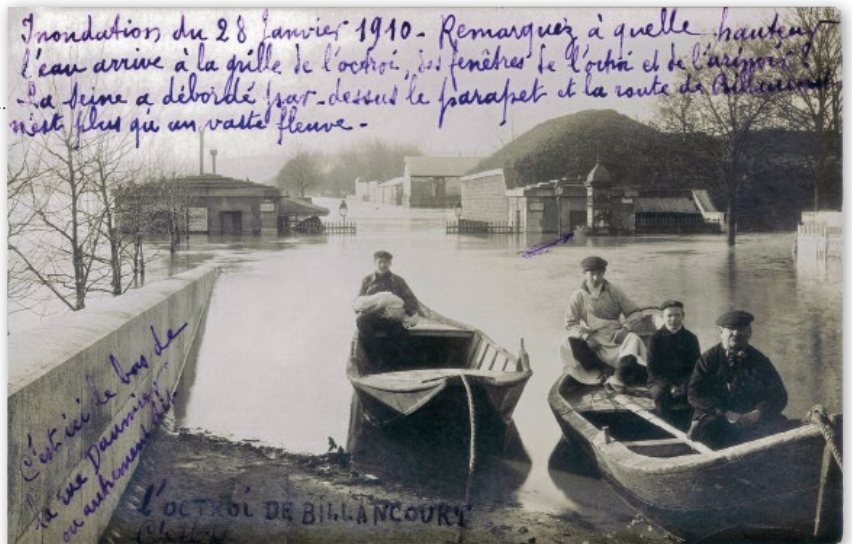 Inondation du 28 Janvier 1910 - Remarquez à quelle hauteur
l'eau arrive à la grille de l'octroi, des fenêtres de l'octroi et de
La Seine a débordé par-dessus le parapet et la route de Billancourt
n'est plus qu'un vaste fleuve -
C'est ici le bas de
la rue Daumier
ou autrement dit
L'OCTROI DE BILLANCOURT